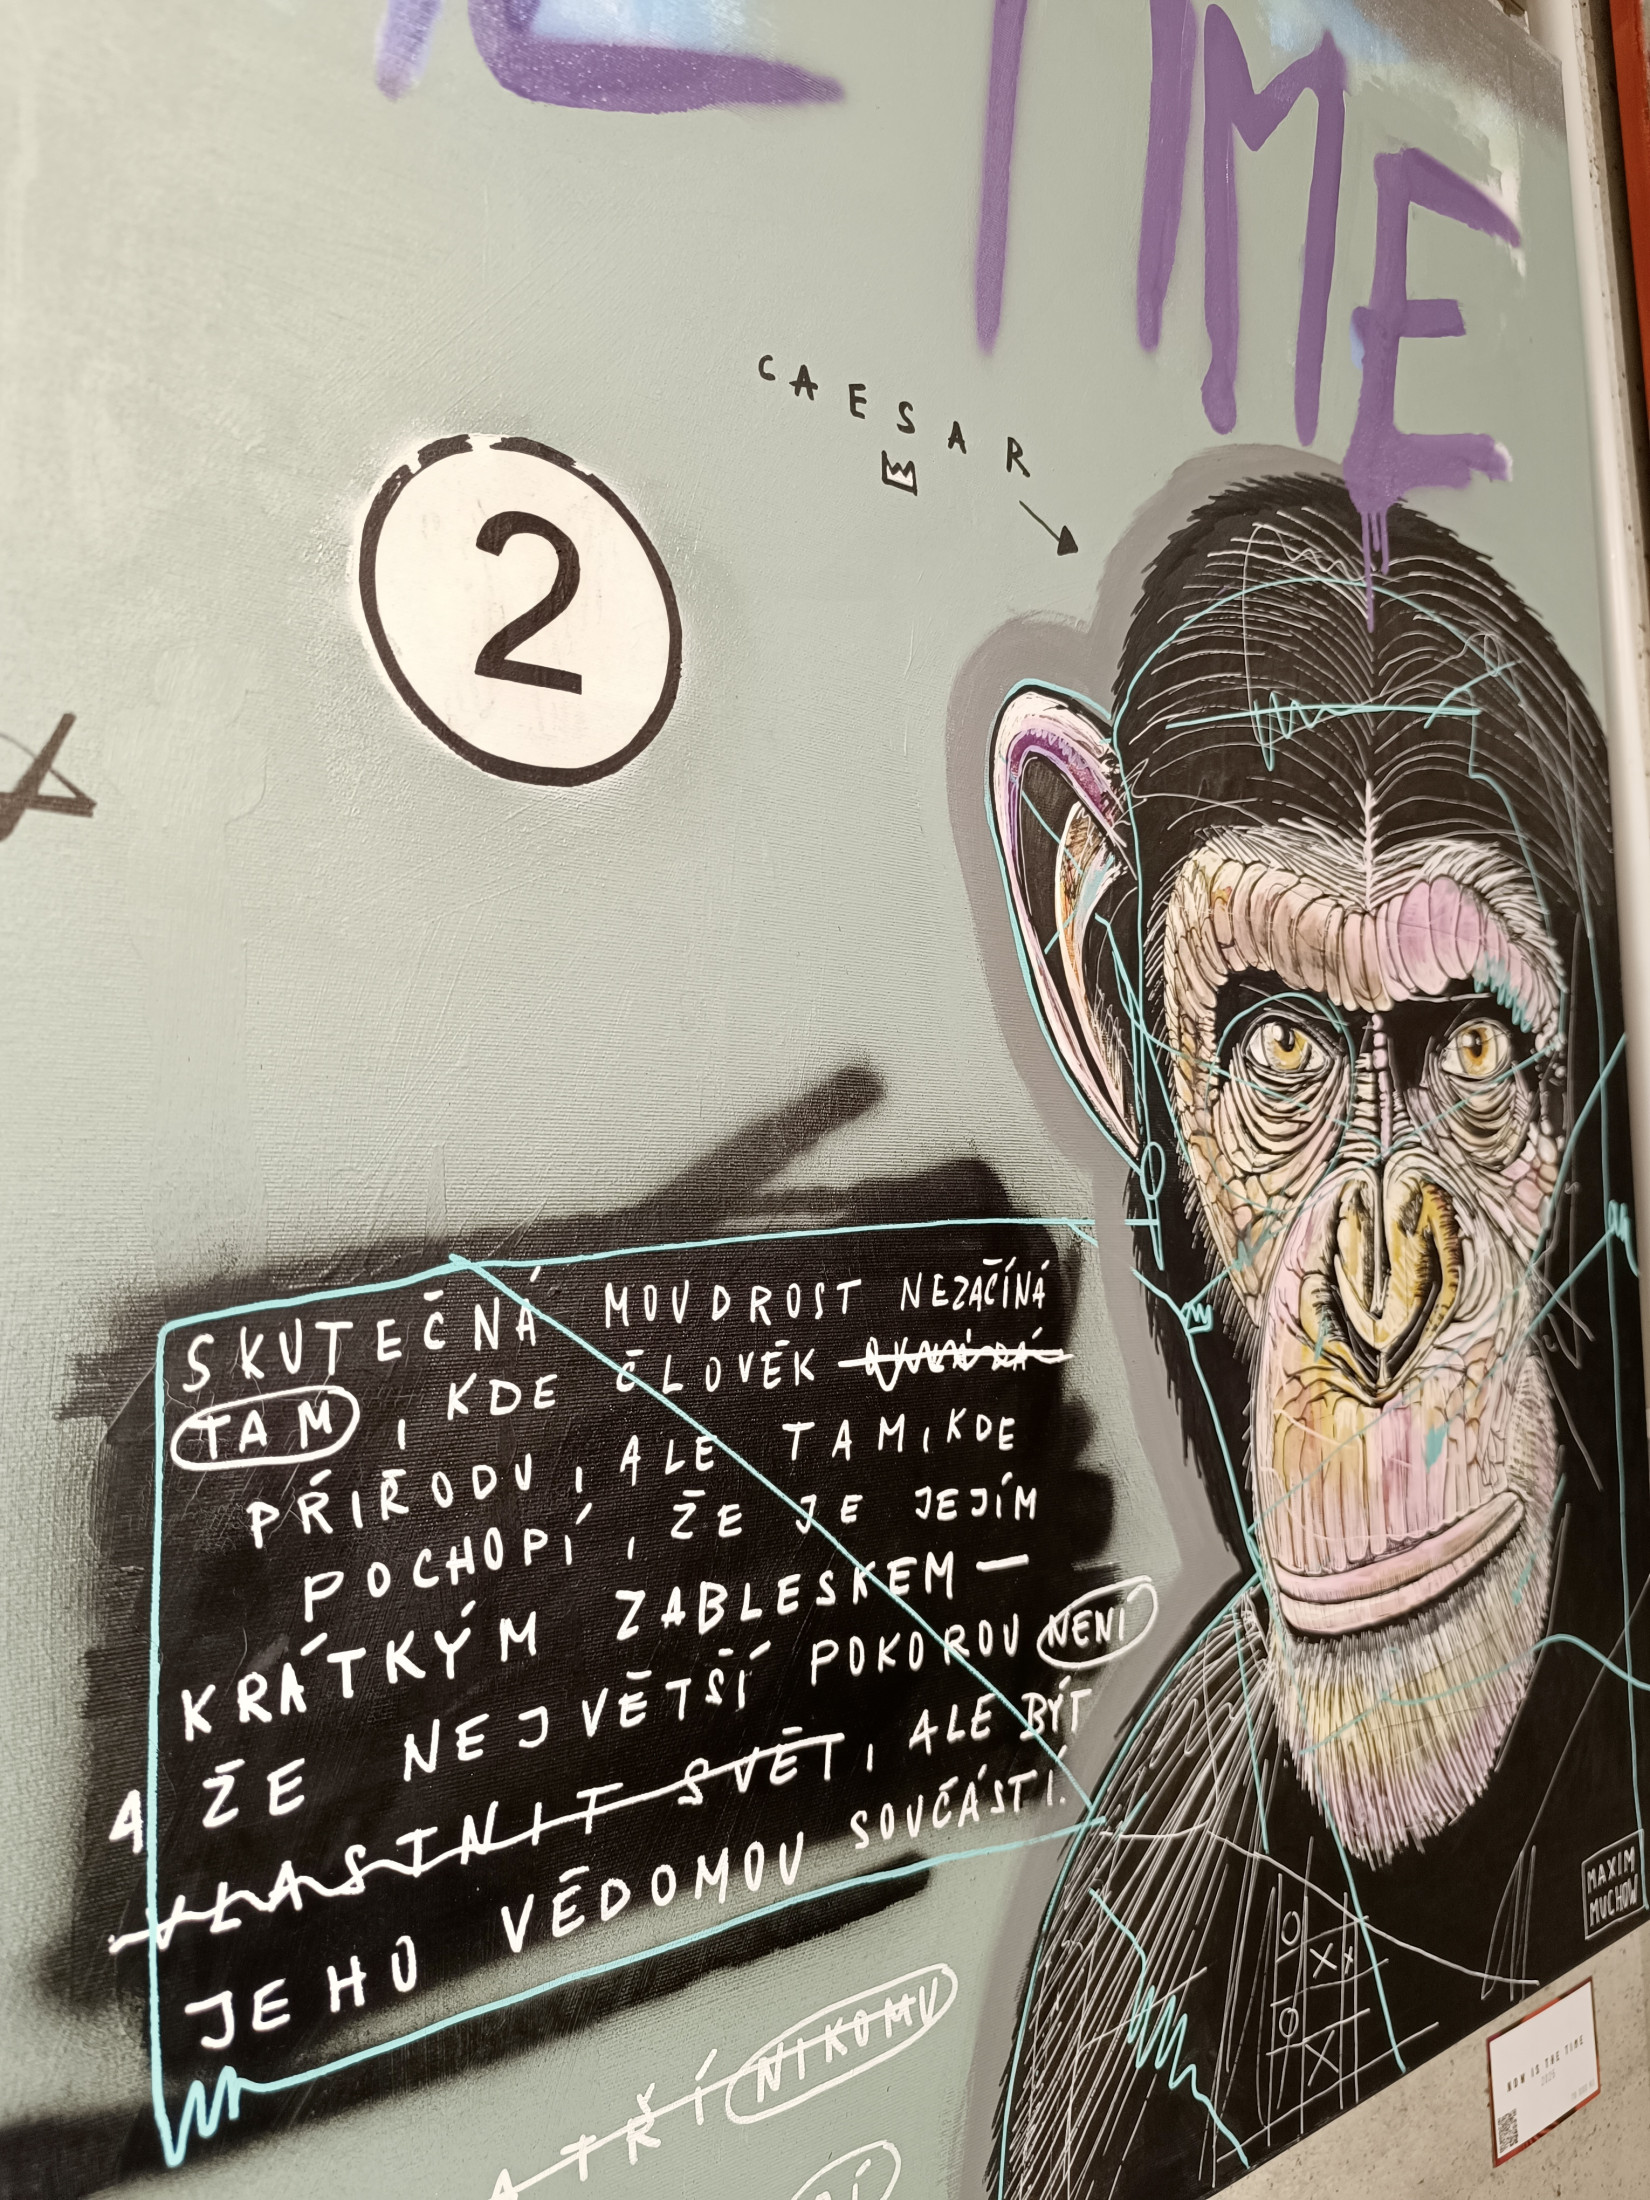 TIME
CAESAR
2
SKUTEČNÁ MOUDROST NEZAČÍNÁ
TAM, KDE ČLOVĚK
PŘÍRODU, ALE TAM, KDE
POCHOPÍ, ŽE JE JEJÍM
KRÁTKÝM ZÁBLESKEM —
A ŽE NEJVĚTŠÍ POKOROU NENÍ
VLASTNIT SVĚT, ALE BÝT
JEHO VĚDOMOU SOUČÁSTÍ.
NIKOMU
MAXIM
MUCHOW
NOW IS THE TIME